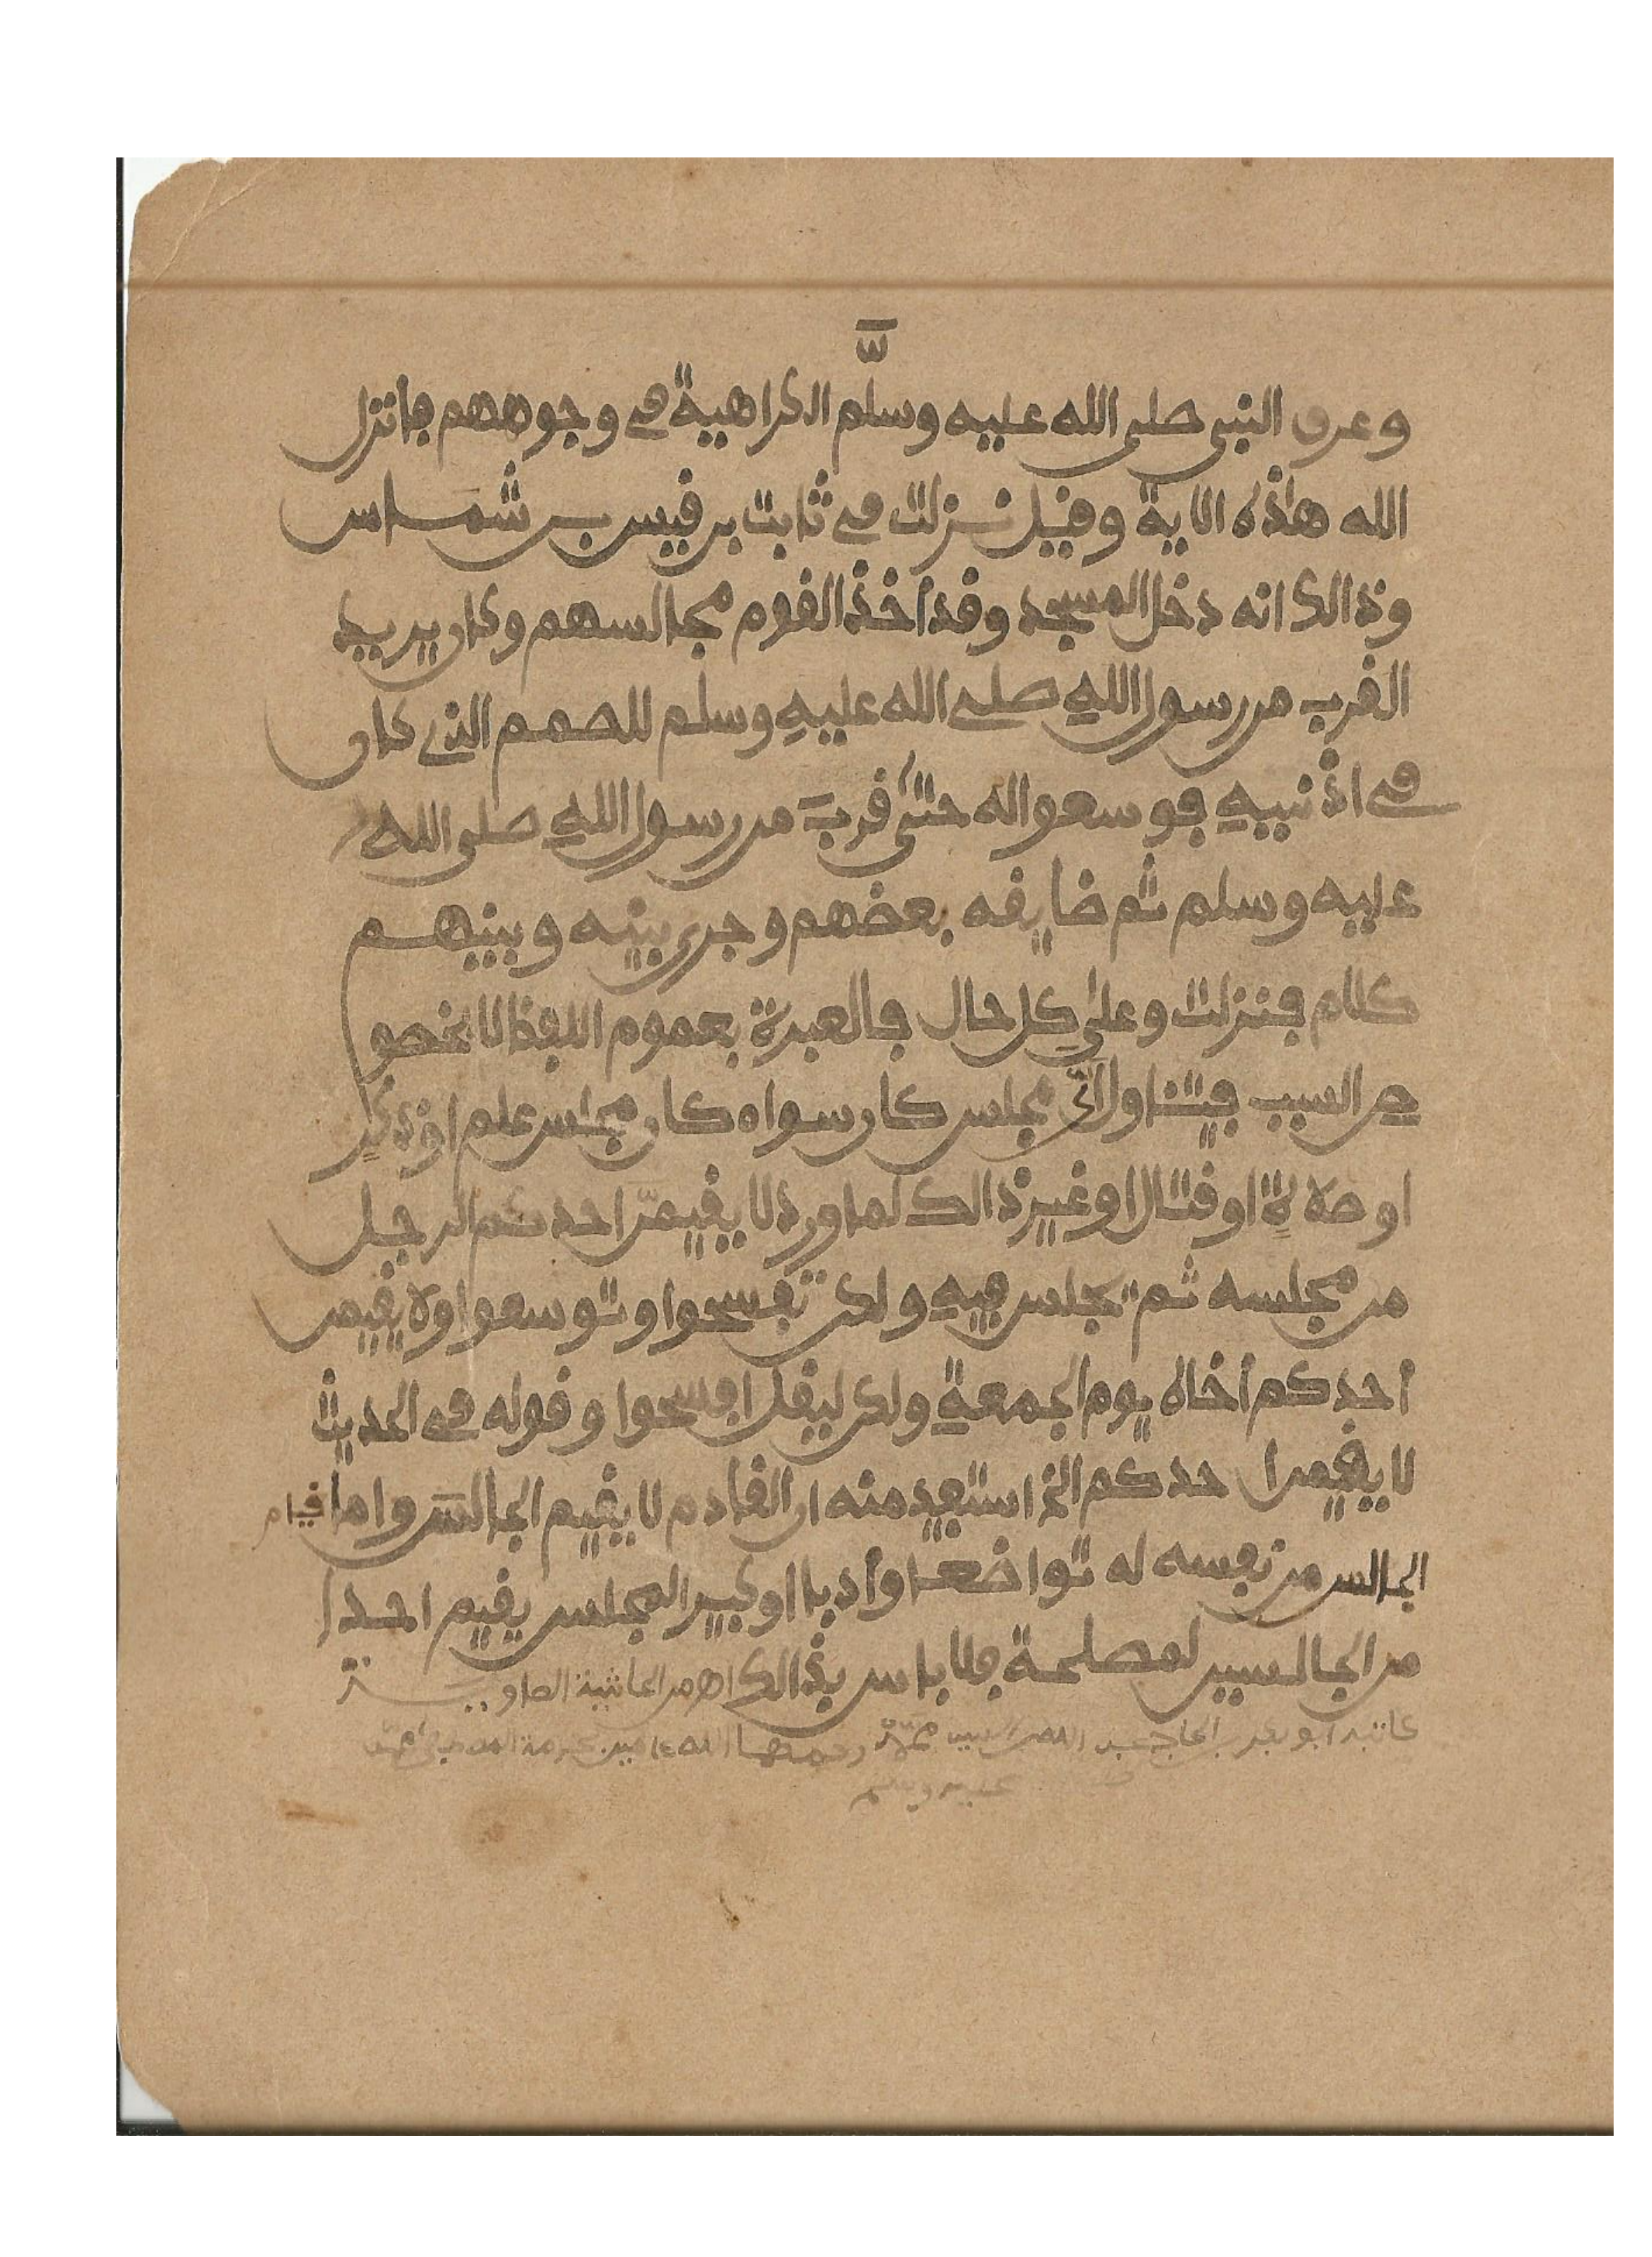 وعرف النبي صلى الله عليه وسلم الكراهية في وجوههم فانزل
الله هاذه الاية وقيل نزلت في ثابت بن قيس بن شماس
وذالك انه دخل المسجد وقد أخذ القوم مجالسهم وكان يريد
القرب من رسول الله صلى الله عليه وسلم للصمم الذي كان
في اذنيه فوسعوا له حتى قرب من رسول الله صلى الله
عليه وسلم ثم ضايقه بعضهم وجرى بينه وبينهم
كلام فنزلت وعلى كل حال فالعبرة بعموم اللفظ لا بخصو
ص السبب فيتناول أي مجلس كان سواء كان مجلس علم او ذكر
او صلاة او قتال او غير ذالك لما ورد لا يقيمن احدكم الرجل
من مجلسه ثم يجلس فيه ولكن تفسحوا وتوسعوا ولا يقيمن
أحدكم أخاه يوم الجمعة ولكن ليقل افسحوا وقوله في الحديث
لا يقيمن احدكم الخ استفيد منه ان القادم لا يقيم الجالس واما قيام
الجالس من نفسه له تواضعا وأدبا او كبير المجلس يقيم احدا
من الجالسين لمصلحة فلا باس بذالك اهـ من الحاشية الصاوي
كاتبه ابو بكر بن الحاج عبد رحمهما الله ءامين بحرمة
عليه وسلم